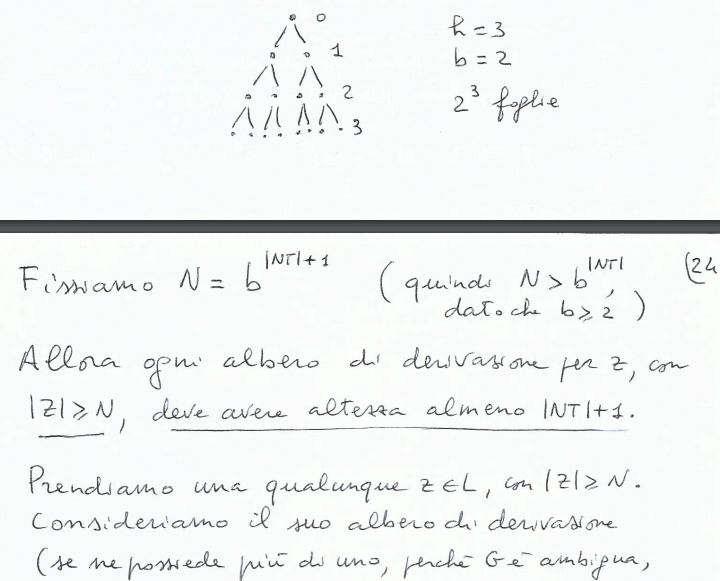 0
h = 3
1
b = 2
2
2³ foglie
3
Fissiamo N = b^|NT|+1 (quindi N > b^|NT|, (24
dato che b ⩾ 2)
Allora ogni albero di derivazione per z, con
|z| ⩾ N, deve avere altezza almeno |NT|+1.
Prendiamo una qualunque z ∈ L, con |z| ⩾ N.
Consideriamo il suo albero di derivazione
(se ne possiede più di uno, perchè G è ambigua,